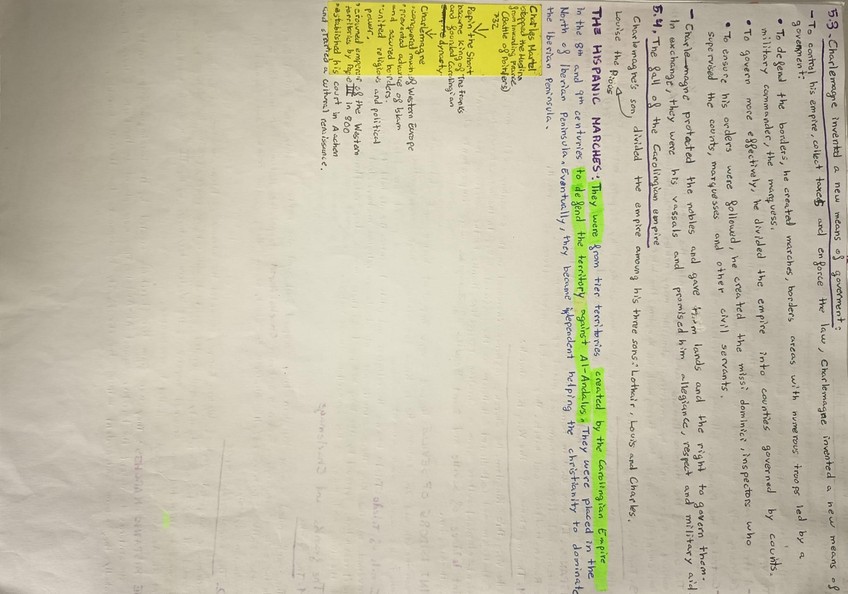 5.3. Charlemagne invented a new means of goverment:
- To control his empire, collect taxes and enforce the law, Charlemagne invented a new means of
goverment:
• To defend the borders, he created marches, borders areas with numerous troops led by a
military commander, the marquess.
• To govern more effectively, he divided the empire into counties governed by counts.
• To ensure his orders were followed, he created the missi dominici, inspectors who
supervised the counts, marquesses and other civil servants.
- Charlemagne protected the nobles and gave them lands and the right to govern them.
In exchange, they were his vassals and promised him allegiance, respect and military aid
5.4. The fall of the Carolingian empire
Charlemagne's son, divided the empire amoung his three sons: Lothair, Louis and Charles.
Louise the Pious
THE HISPANIC MARCHES: They were fron tier territories created by the Carolingian Empire
in the 8th and 9th centuries to defend the territory against Al-Andalus. They were placed in the
North of Iberian Peninsula. Eventually, they became independent helping the christianity to dominate
the Iberian Peninsula.
Charles Martel
stopped the Muslims
from invading France
(Battle of Poitiers)
732
Pepin the Short
became king of the Franks
and founded Carolingian
dynasty
Charlemagne
•conquered much of Western Europe
•prevented advance of Islam
and secured borders.
•united religious and political
power.
•crowned emperor of the Western
territories by Pope III in 800
•established his court in Aachen
and started a cultural renaissance.